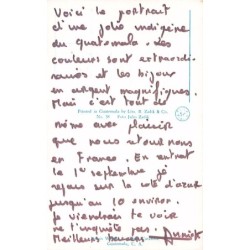 Voici le portrait
d'une jolie indigène
du Guatemala. Les
couleurs sont extraordi-
naires et les bijoux
en argent magnifiques.
Mais c'est tout de
même avec plaisir
que nous retournons
en France. En entrant
le 1er septembre je
repars sur la côte d'azur
jusqu'au 10 environ.
Je viendrai te voir
ne t'inquiète pas.
Meilleurs baisers Annick
Printed in Guatemala by
No.
Guatemala, C. A.